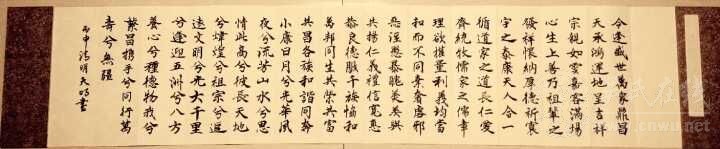 今逢盛世萬家鼎昌
天承鴻運地呈吉祥
宗親如雲喜客滿場
心生上善乃祖輩之
發祥懷納厚德祈寰
宇之泰康天人合一
循道家之道長仁愛
齊統牧儒家之儒幸
理欲權量利義均當
和而不同奢邪
惡淫恭聰美與
共揚仁義禮信寬惠
恭良德服千族協和
萬邦同生共榮共富
共昌各族和諧同奔
小康日月兮光華風
夜兮流芳山水兮思
情此高兮彼長天地
兮煌兮祖宗兮遥
遠文明兮光大千里
兮逢迎五洲兮八方
養心兮種德物我兮
繁昌攜手兮同行萬
壽兮無疆
丙申清明書
在线